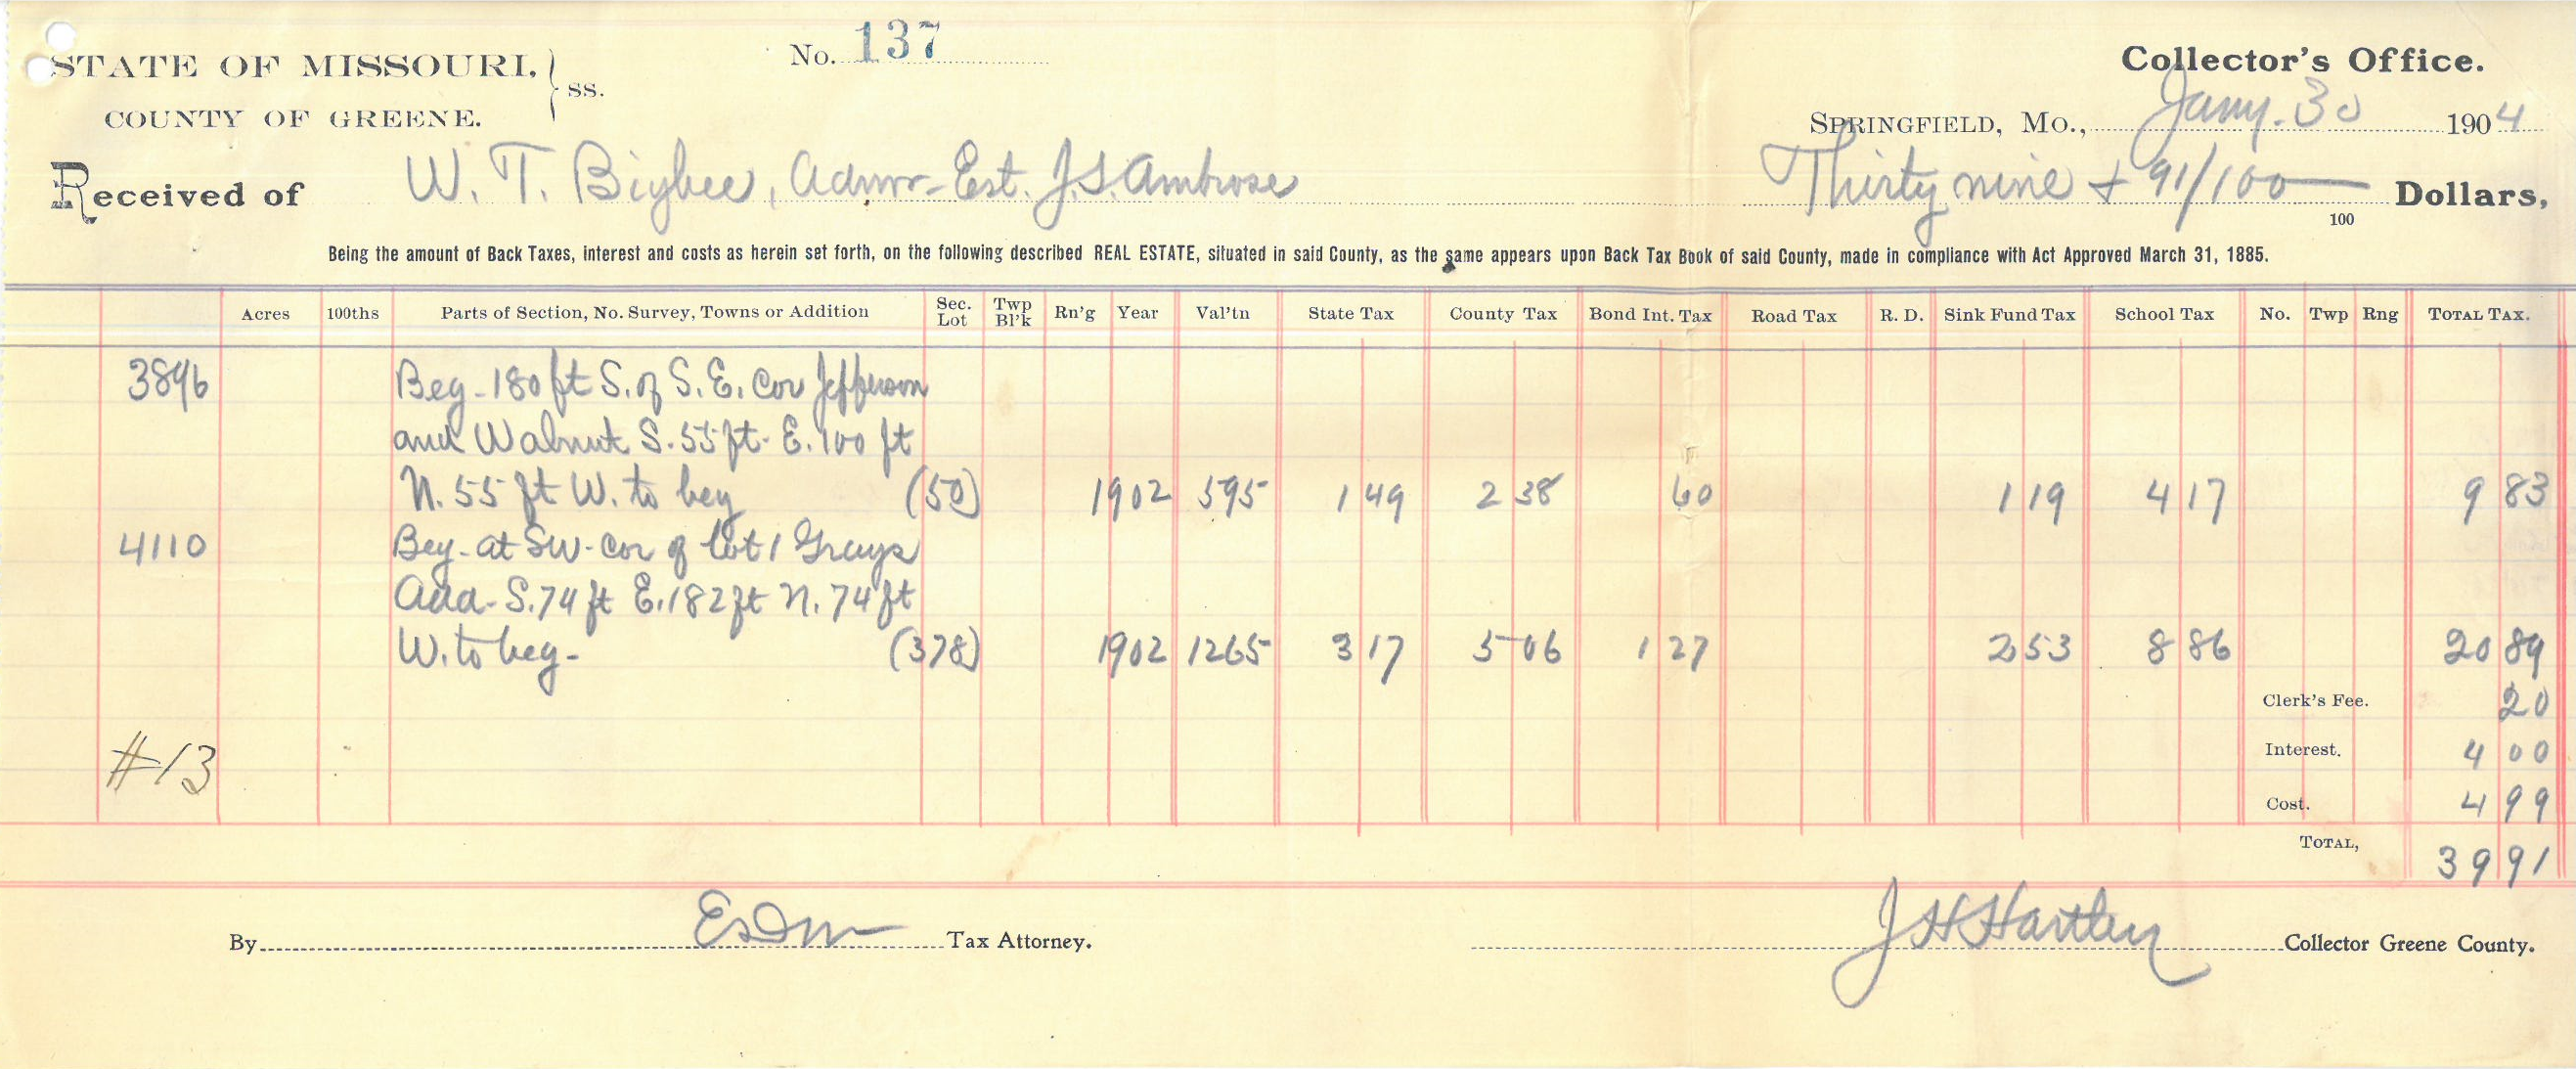 STATE OF MISSOURI, } ss. No. 137 Collector's Office.
COUNTY OF GREENE. Springfield, Mo., Jany. 30 1904
Received of W. T. Bigbee, Admr. Est. J. S. Ambrose Thirty nine + 91/100 Dollars,
100
Being the amount of Back Taxes, interest and costs as herein set forth, on the following described REAL ESTATE, situated in said County, as the same appears upon Back Tax Book of said County, made in compliance with Act Approved March 31, 1885.
Acres 100ths Parts of Section, No. Survey, Towns or Addition Sec. Lot Twp Bl'k Rn'g Year Val'tn State Tax County Tax Bond Int. Tax Road Tax R. D. Sink Fund Tax School Tax No. Twp Rng Total Tax.
3896 Beg - 180 ft S. of S. E. Cor Jefferson
and Walnut S. 55 ft - E. 100 ft
N. 55 ft W. to beg (50) 1902 595 1 49 2 38 60 1 19 4 17 9 83
4110 Beg - at SW - Cor of Lot 1 Grays
Add - S. 74 ft E. 182 ft N. 74 ft
W. to beg - (378) 1902 1265 3 17 5 06 1 27 2 53 8 86 20 89
Clerk's Fee. 20
#13 Interest. 4 00
Cost. 4 99
Total, 39 91
By Tax Attorney. J H Hartley Collector Greene County.